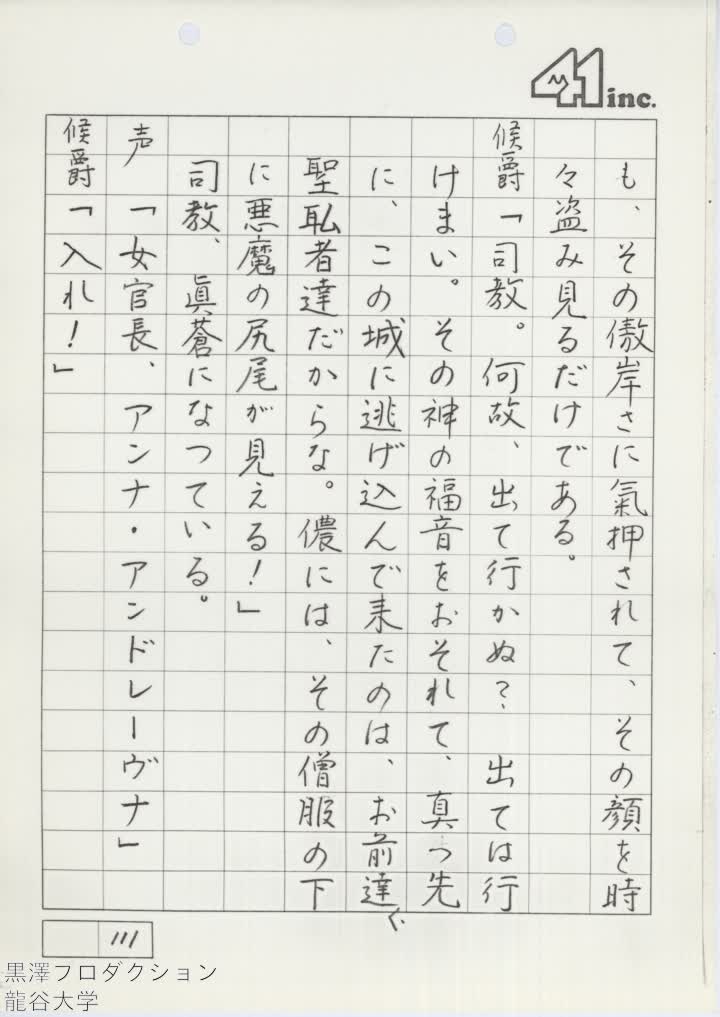 41 inc.
も、その傲岸さに氣押されて、その顔を時
々盗み見るだけである。
候爵「司教。何故、出て行かぬ？　出ては行
けまい。その神の福音をおそれて、真っ先
に、この城に逃げ込んで来たのは、お前達、
聖耻者達だからな。儂には、その僧服の下
に悪魔の尻尾が見える！」
司教、眞蒼になつている。
声「女官長、アンナ・アンドレーヴナ」
候爵「入れ！」
111
黒澤プロダクション
龍谷大学